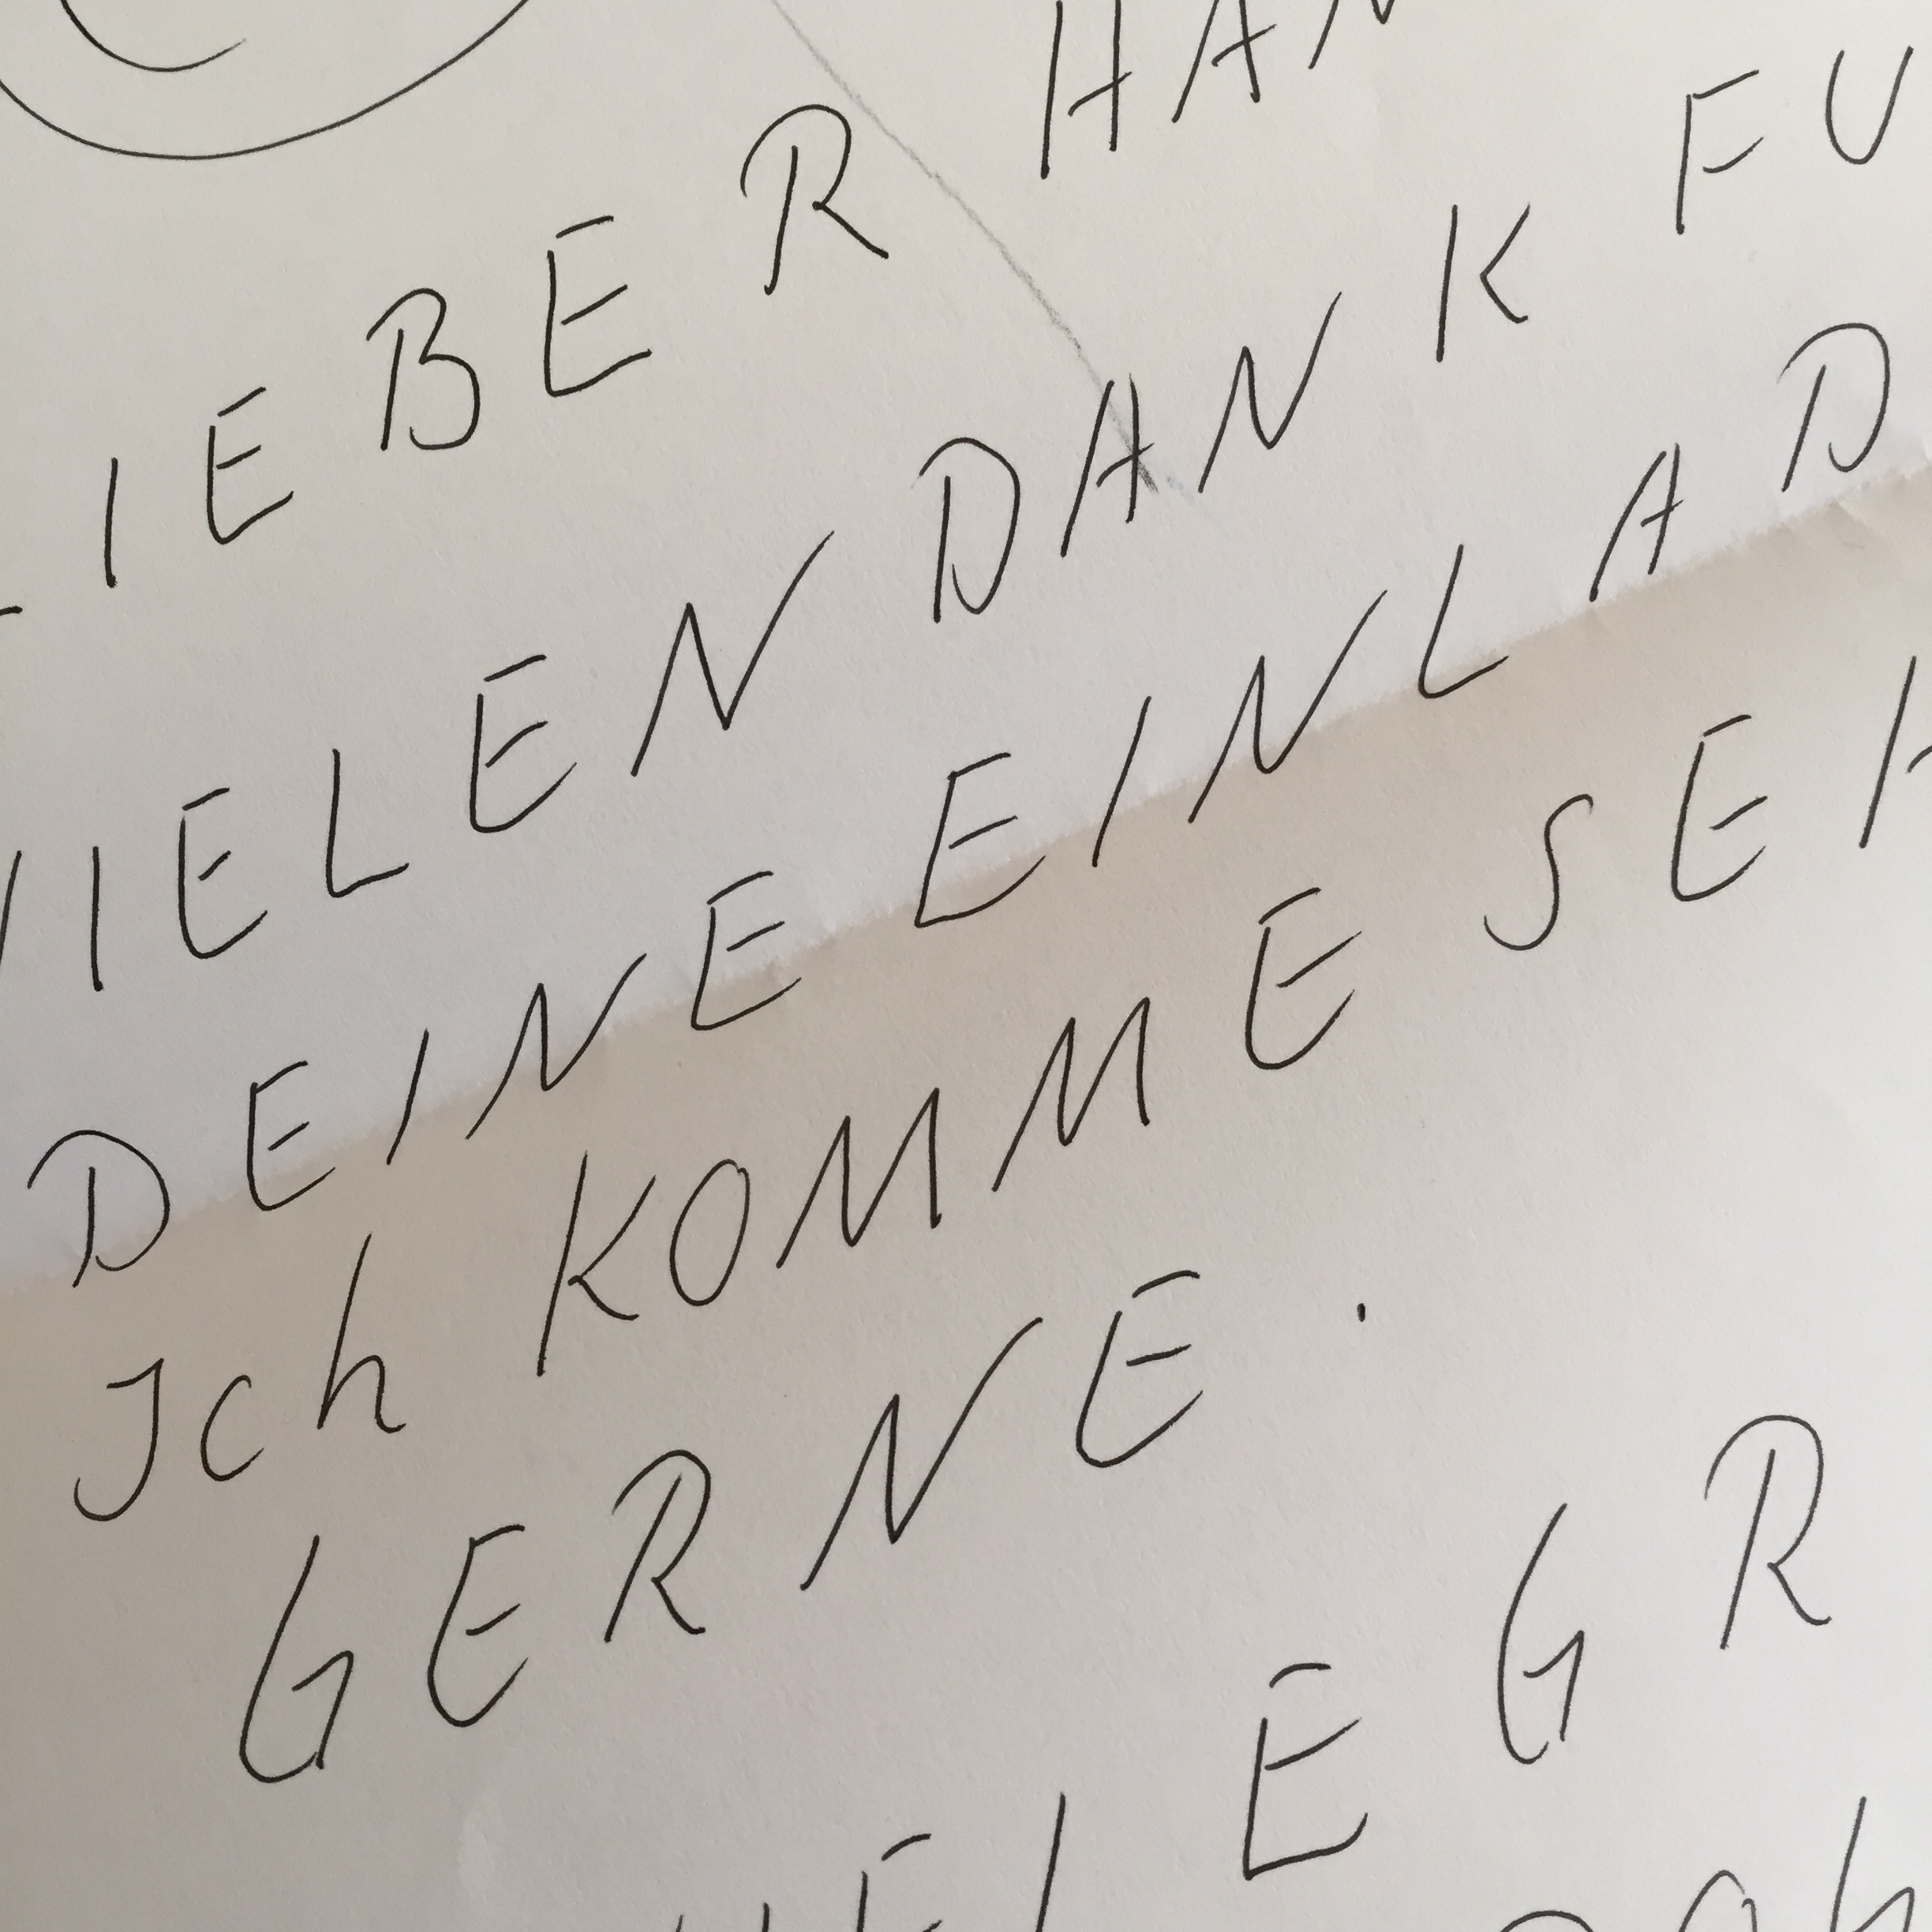 IEBER HAN
VIELEN DANK FÜ
DEINE EINLAD
Ich KOMME SEH
GERNE.
E GR